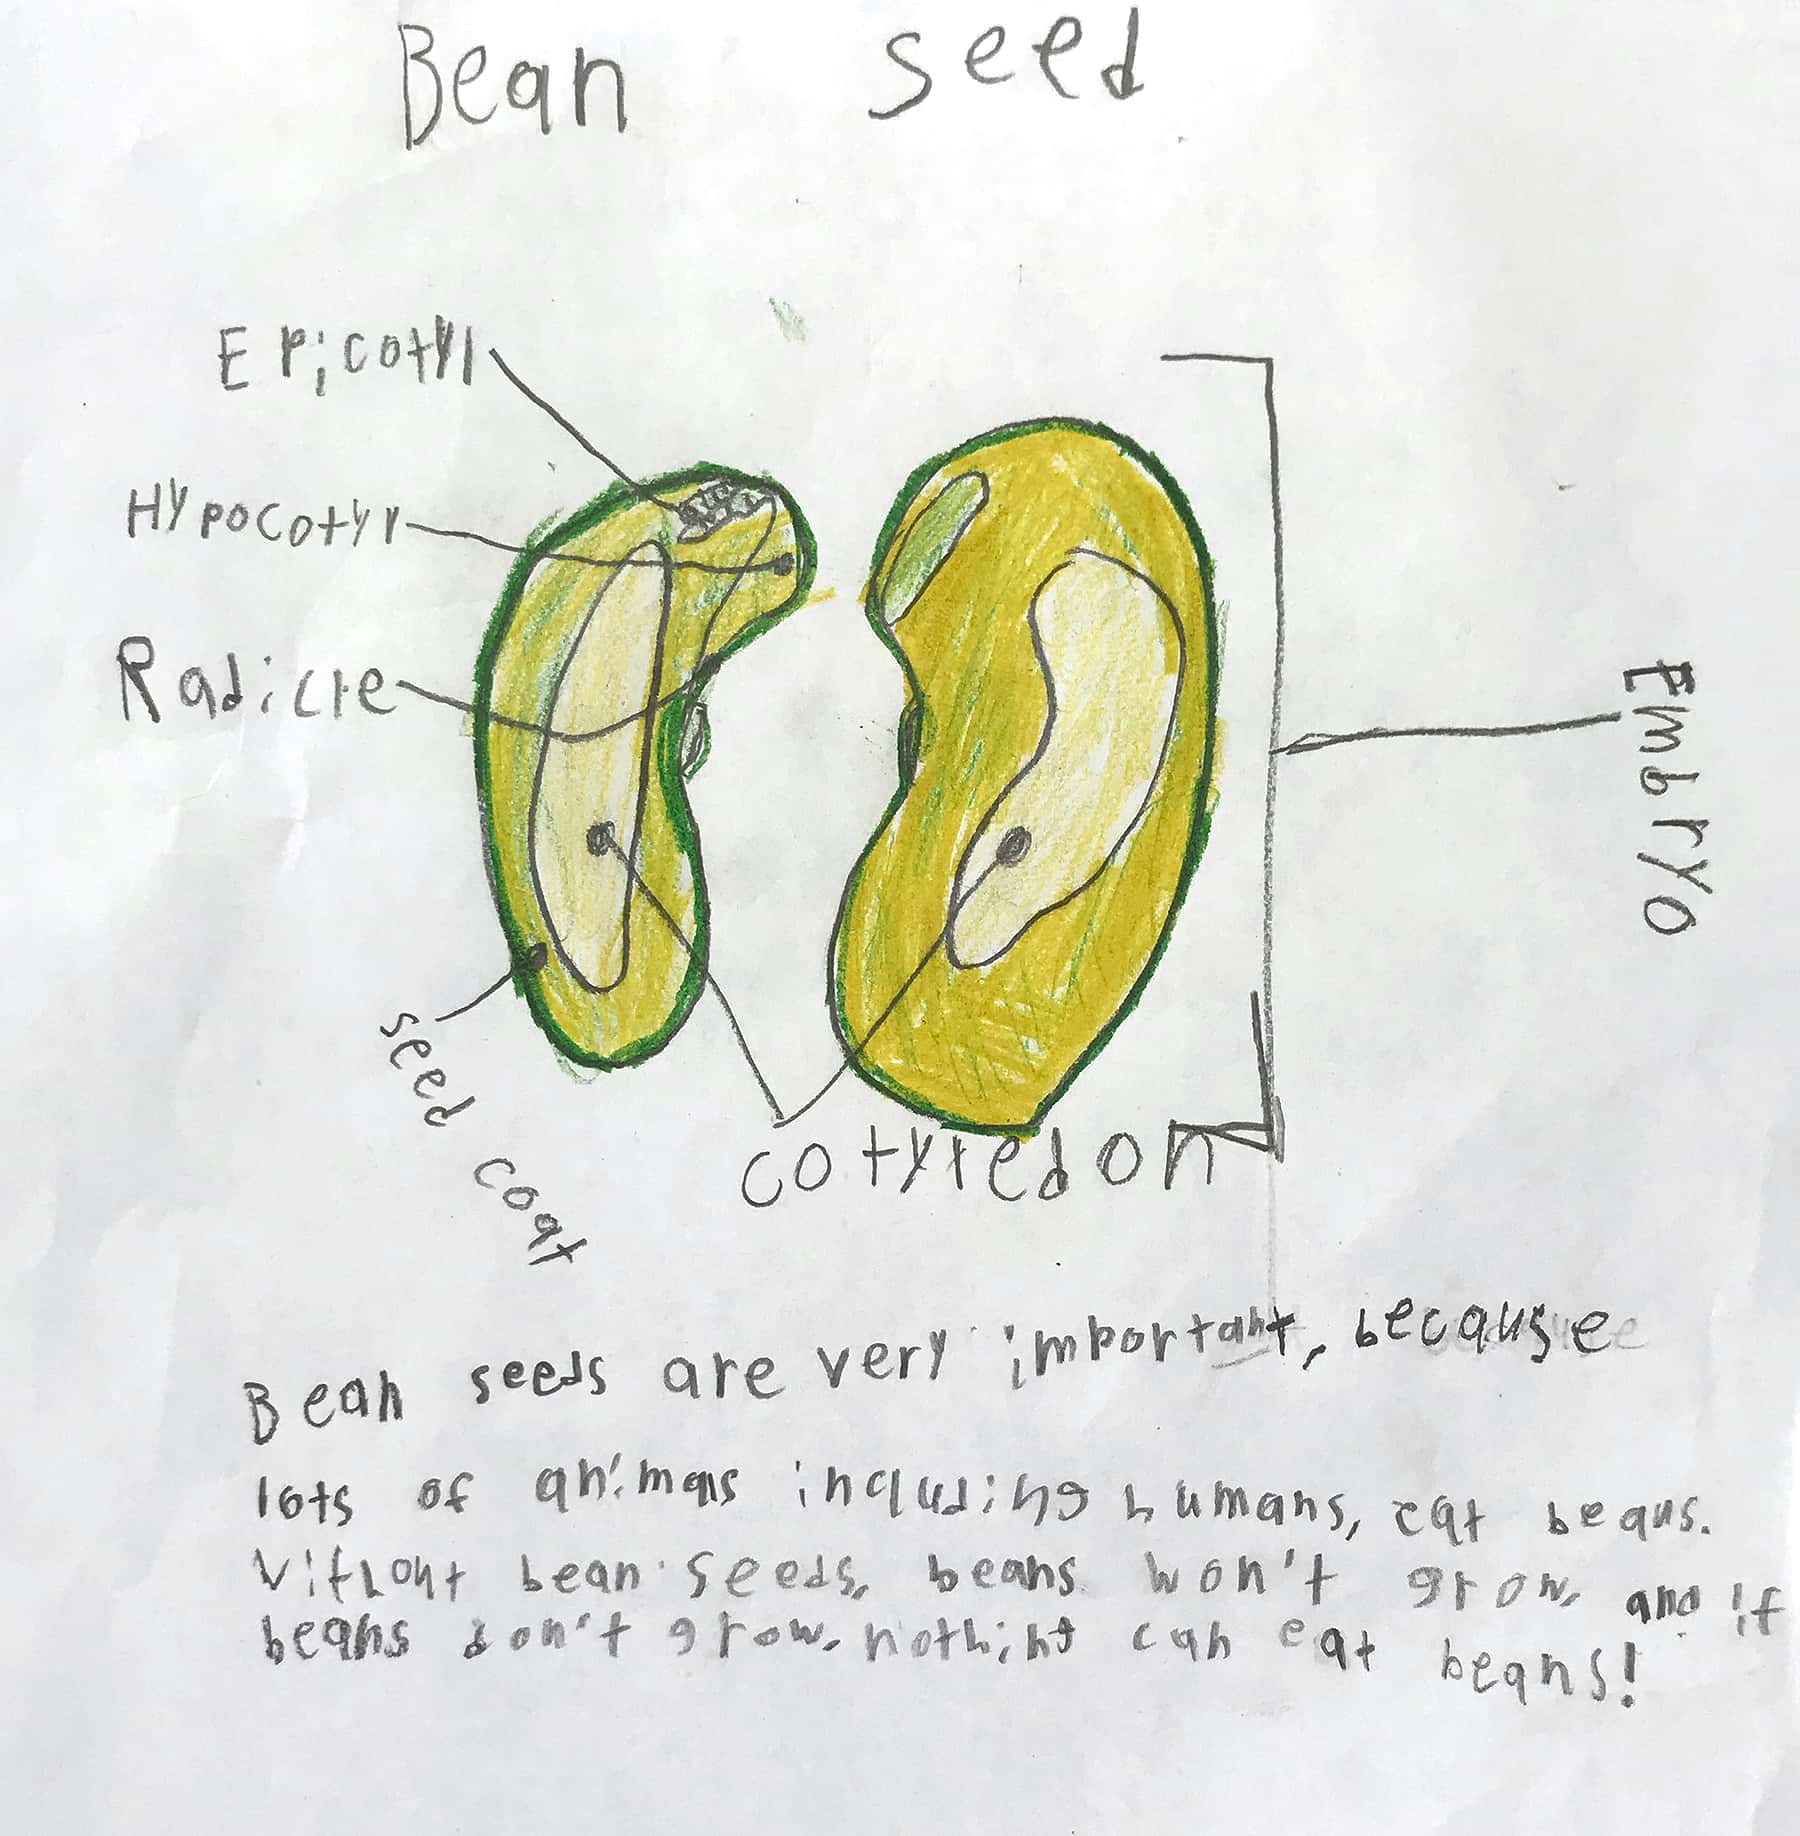 Bean seed
Epicotyl
Hypocotyl
Radicle
Embryo
seed coat
cotyledon
Bean seeds are very important, because
lots of animals including humans, eat beans.
Without bean seeds, beans won't grow, and if
beans don't grow, nothing can eat beans!